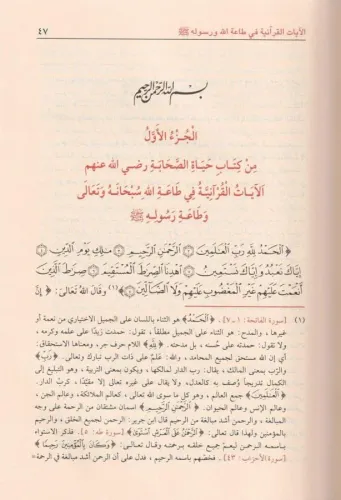 الآيات القرآنية في طاعة الله ورسوله ﷺ
٤٧
بسم الله الرحمن الرحيم
الْجُزْءُ الأَوَّلُ
مِنْ كِتَابِ حَيَاةِ الصَّحَابَةِ رضي الله عنهم
الآيَاتُ الْقُرْآنِيَّةُ فِي طَاعَةِ اللهِ سُبْحَانَهُ وَتَعَالَى
وَطَاعَةِ رَسُولِهِ ﷺ
﴿الْحَمْدُ لِلَّهِ رَبِّ الْعَالَمِينَ ۝ الرَّحْمَنِ الرَّحِيمِ ۝ مَالِكِ يَوْمِ الدِّينِ ۝
إِيَّاكَ نَعْبُدُ وَإِيَّاكَ نَسْتَعِينُ ۝ اهْدِنَا الصِّرَاطَ الْمُسْتَقِيمَ ۝ صِرَاطَ الَّذِينَ
أَنْعَمْتَ عَلَيْهِمْ غَيْرِ الْمَغْضُوبِ عَلَيْهِمْ وَلَا الضَّالِّينَ﴾(١) وقال الله تعالى: ﴿إِنَّ
(١) [سورة الفاتحة: ١ - ٧]. ﴿الْحَمْدُ﴾ هو الثناء باللسان على الجميل الاختياري من نعمة أو
غيرها، والمدح: هو الثناء على الجميل مطلقاً، تقول: حمدت زيداً على علمه وكرمه،
ولا تقول: حمدته على حسنه، بل مدحته. ﴿لِلَّهِ﴾ اللام حرف جر، ومعناها الاستحقاق:
أي إن الله مستحق لجميع المحامد، والله: عَلَمٌ على ذات الرب تبارك وتعالى. ﴿رَبِّ﴾
والرَّب بمعنى المالك، يقال: رب الدار لمالكها، ويكون بمعنى التربية، وهو التبليغ إلى
الكمال تدريجاً وُصف به كالعدل، ولا يقال على غيره تعالى إلا مقيَّدًا، كرب الدار.
﴿الْعَالَمِينَ﴾ جمع العالم، وهو كل ما سوى الله تعالى، كعالم الملائكة، وعالم الجن،
وعالم الإنس وعالم الحيوان. ﴿الرَّحْمَنِ الرَّحِيمِ﴾ اسمان مشتقان من الرحمة على وجه
المبالغة، والرحمن أشد مبالغة من الرحيم قال ابن جرير: الرحمن لجميع الخلق، والرحيم
بالمؤمنين ولهذا قال تعالى: ﴿الرَّحْمَنُ عَلَى الْعَرْشِ اسْتَوَى﴾ [سورة طه: ٥]. فذكر الاستواء
باسمه الرحمن ليعم جميع خلقه برحمته وقال تعالى: ﴿وَكَانَ بِالْمُؤْمِنِينَ رَحِيمًا﴾
[سورة الأحزاب: ٤٣]. فخصهم باسمه الرحيم، فدل على أن الرحمن أشد مبالغة في الرحمة=